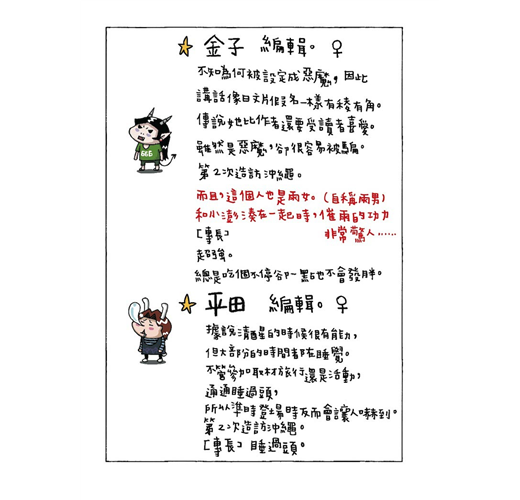 金子 編輯。♀
不知為何被設定成惡魔,因此
講話像日文片假名一樣有稜有角。
傳說她比作者還要受讀者喜愛。
雖然是惡魔,卻很容易被騙。
第2次造訪沖繩。
而且,這個人也是雨女。(自稱雨男)
和小澎湊在一起時,催雨的功力
非常驚人……
[專長]
超強。
總是吃個不停卻一點也不會發胖。
666
平田 編輯。♀
據說清醒的時候很有能力,
但大部分的時間都在睡覺。
不管參加取材旅行還是活動,
通通睡過頭,
所以準時登場時反而會讓人嚇到。
第2次造訪沖繩。
[專長] 睡過頭。